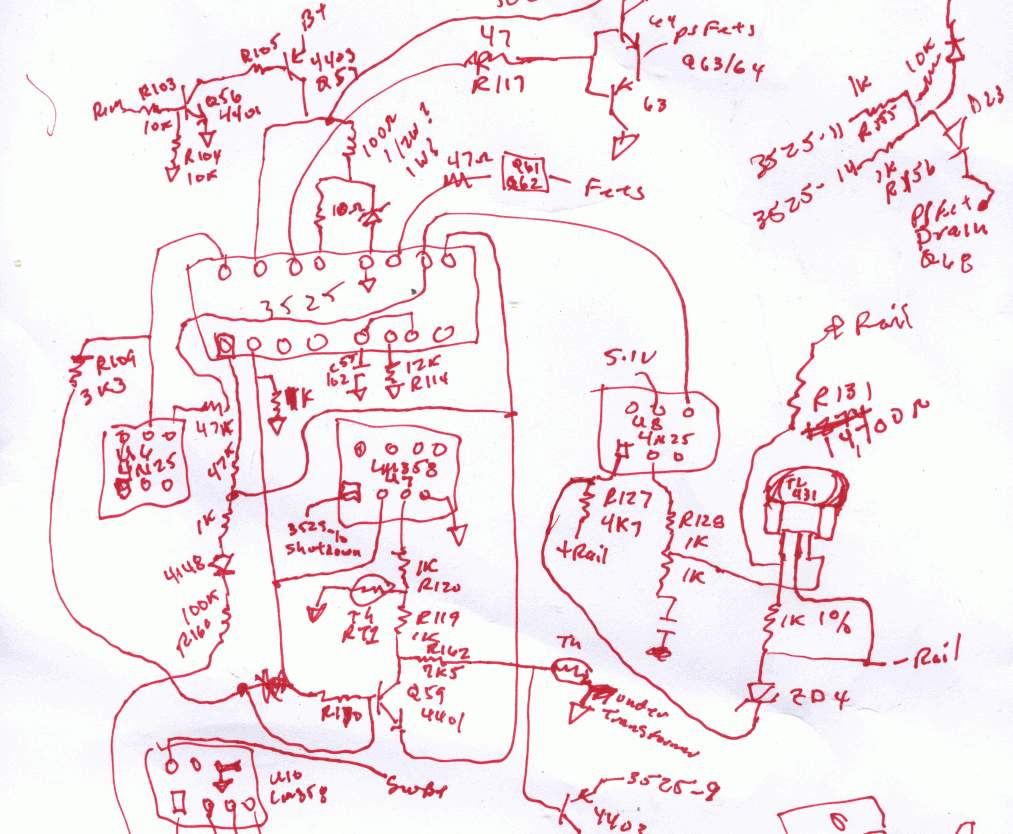 B+
R105
4403
Q57
R103
10K
Q56
4401
R104
10K
47
R117
64
psFets
Q63/64
63
100Ω
1/2W?
1W?
47Ω
Q61
Q62
Fets
10Ω
10K
1K
R155
3525-11
3525-14
1K
R156
D23
Drain
Q68
3525
R109
3K3
102
12K
R114
47K
U6
4N25
47K
LM358
U7
3525-10
Shutdown
1K
4148
100K
R160
1K
R120
TH
RT1
R119
1K
R162
2K5
Q59
4401
TH
under
Transformer
5.1V
U8
4N25
R127
4K7
+Rail
R128
1K
1K
Rail
R131
14,700Ω
TL
431
1K 1%
-Rail
ZD4
U10
LM358
3525-9